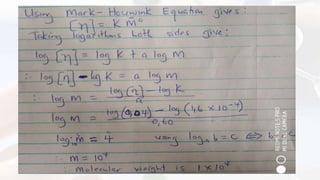 Using Mark-Houwink Equation gives:
[η] = K M^a
Taking logarithms both sides give:
log [η] = log K + a log m
∴ log [η] - log K = a log m
∴ log m = log [η] - log K / a
log m = log (0.04) - log (1.6 × 10⁻⁴) / 0.60
log₁₀ m = 4 using log_a b = c ⟺
∴ m = 10⁴
∴ molecular weight is 1 × 10⁴
REDMI NOTE 5 PRO
MI DUAL CAMERA